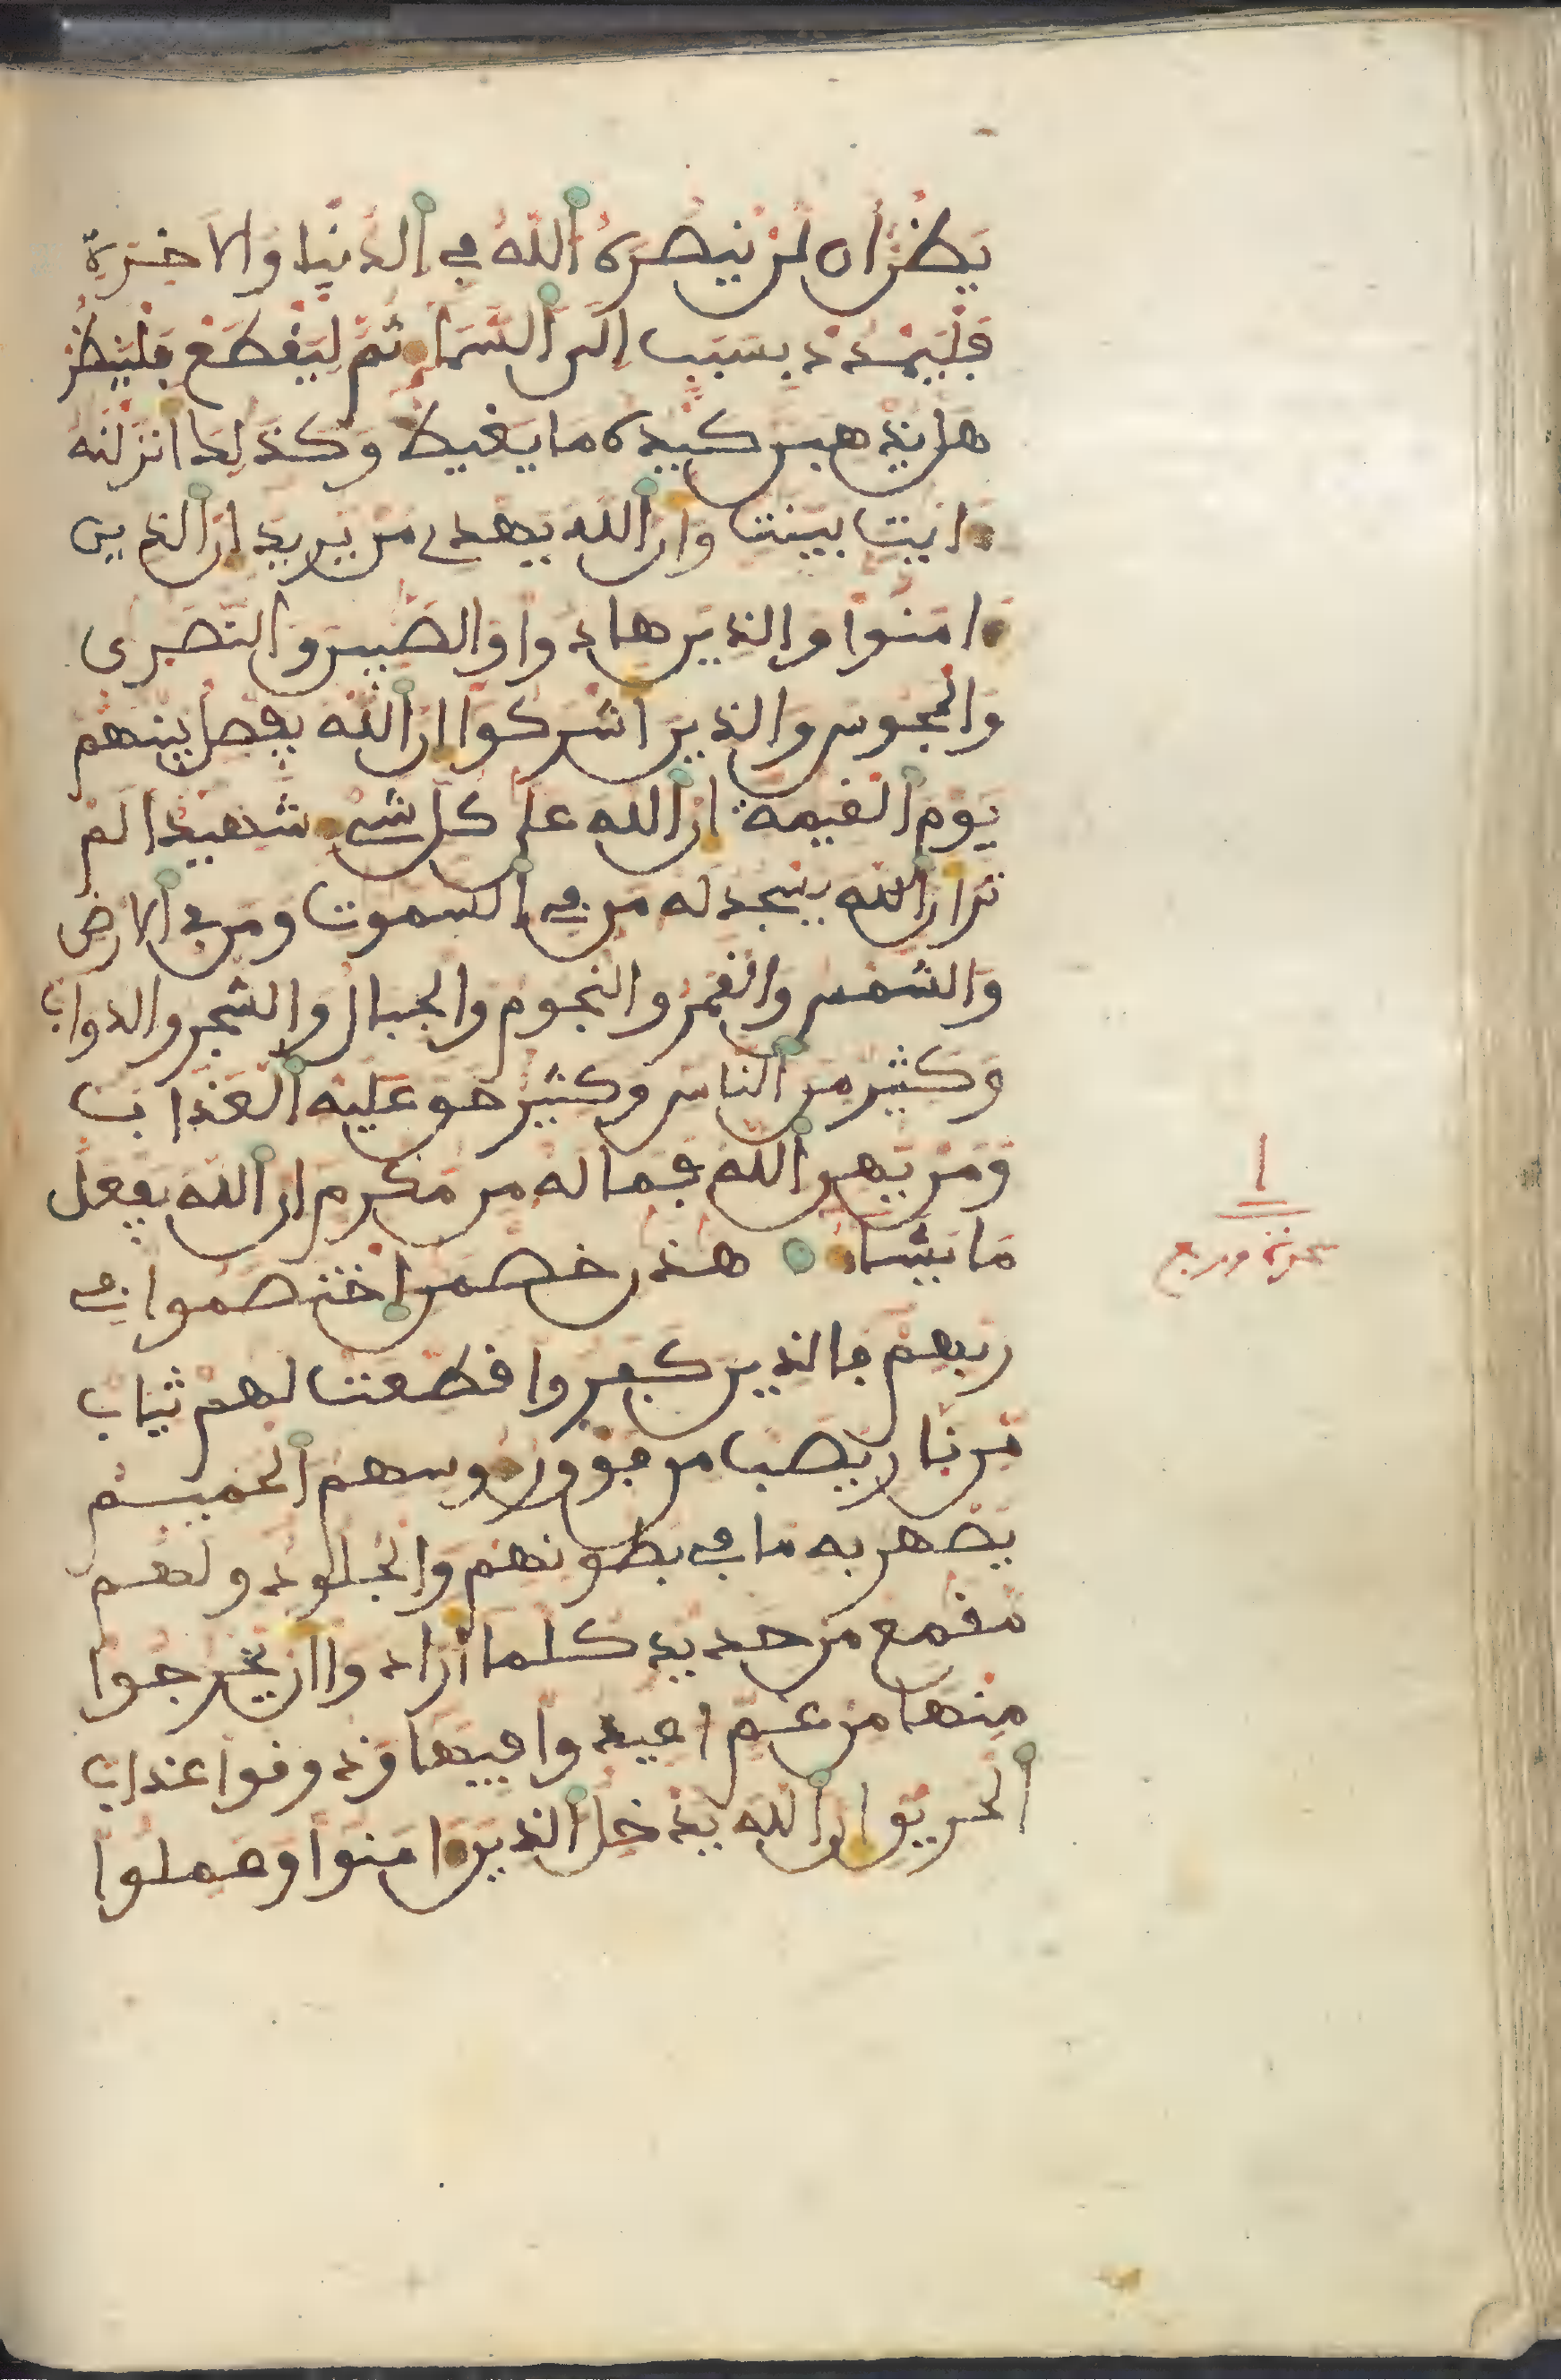 يظن ان لن ينصره الله في الدنيا والاخرة
فليمدد بسبب الى السما ثم ليقطع فلينظر
هل يذهبن كيده ما يغيظ وكذلك انزلنه
ايت بينت وان الله يهدي من يريد ان الذين
امنوا والذين هادوا والصبين والنصرى
والمجوس والذين اشركوا ان الله يفصل بينهم
يوم القيمة ان الله على كل شي شهيد الم
تر ان الله يسجد له من في السموت ومن في الارض
والشمس والقمر والنجوم والجبال والشجر والدواب
وكثير من الناس وكثير حق عليه العذاب
ومن يهن الله فما له من مكرم ان الله يفعل
ما يشا هذن خصمن اختصموا في
ربهم فالذين كفروا قطعت لهم ثياب
من نار يصب من فوق روسهم الحميم
يصهر به ما في بطونهم والجلود ولهم
مقمع من حديد كلما ارادوا ان يخرجوا
منها من غم اعيدوا فيها وذوقوا عذاب
الحريق ان الله يدخل الذين امنوا وعملوا